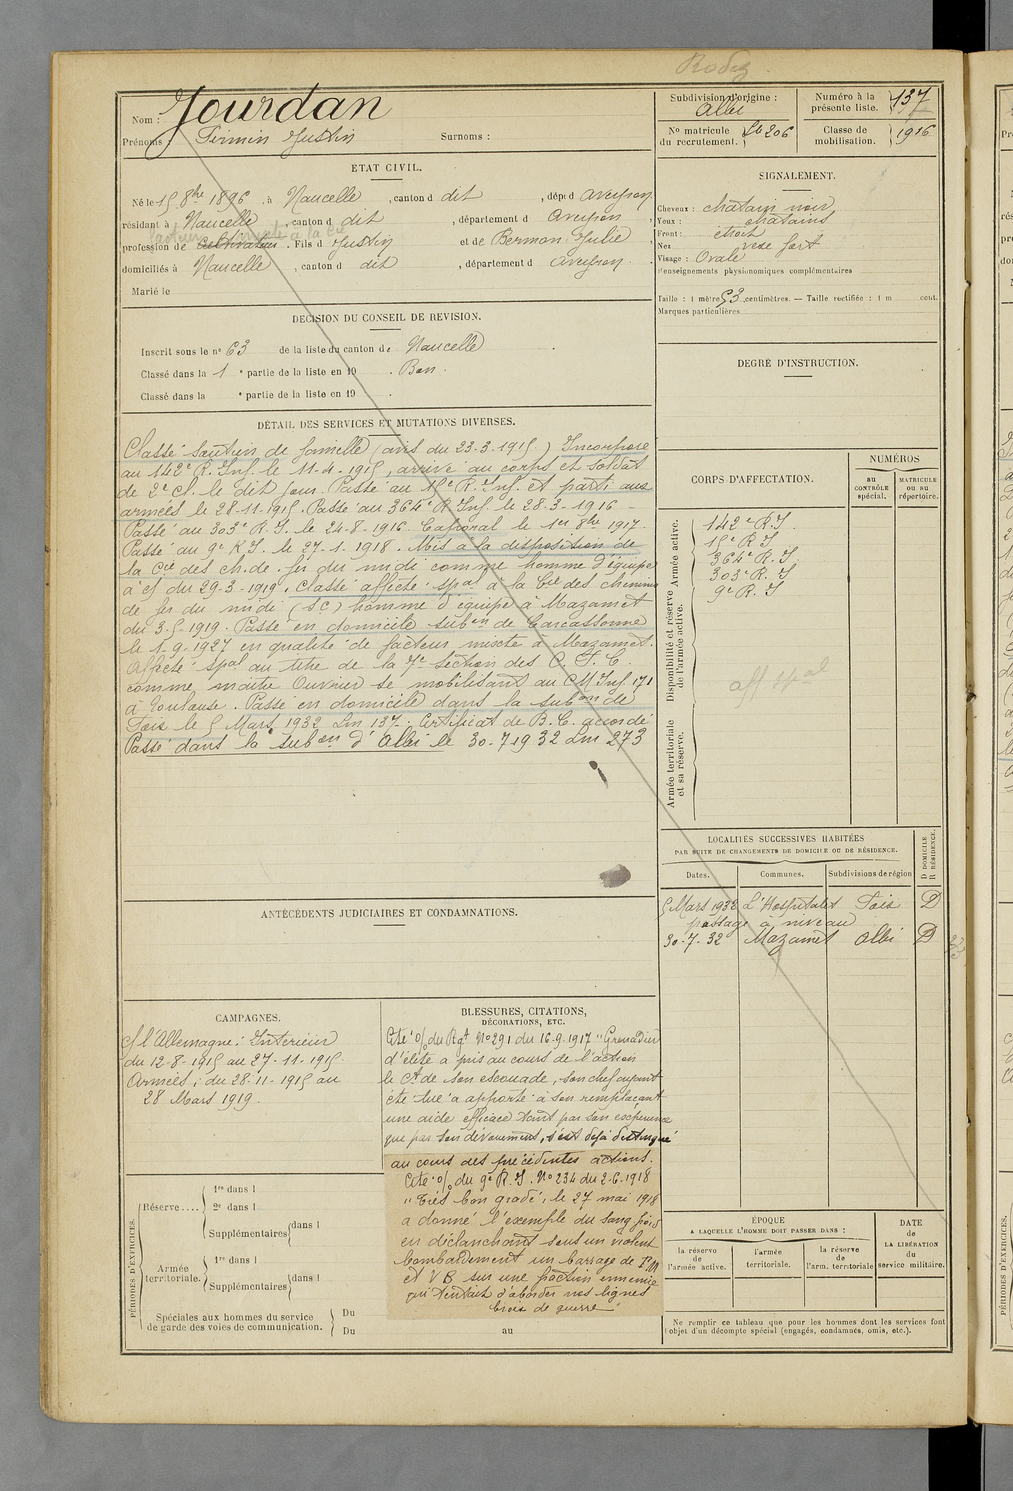 Rodez
Nom : Jourdan
Prénoms Firmin Justin Surnoms :
Subdivision d'origine :
Albi
Numéro à la
présente liste. 137
No matricule
du recrutement. 206
Classe de
mobilisation. 1916
ETAT CIVIL.
Né le 15 8bre 1896 , à Naucelle , canton d dit , dép. d Aveyron
résidant à Naucelle , canton d dit , département d Aveyron
facteur mixte à la Cie
profession de cultivateur . Fils d Justin et de Berman Julie ,
domiciliés à Naucelle , canton d dit , département d Aveyron .
Marié le
SIGNALEMENT.
Cheveux : chatain noir
Yeux : chatains
Front : étroit
Nez vexe fort
Visage : Ovale
Renseignements physionomiques complémentaires
Taille : 1 mètre 53 centimètres. — Taille rectifiée : 1 m cent.
Marques particulières
DÉCISION DU CONSEIL DE REVISION.
Inscrit sous le n° 63 de la liste du canton de Naucelle .
Classé dans la 1 e partie de la liste en 19 . Bon .
Classé dans la e partie de la liste en 19 .
DEGRÉ D'INSTRUCTION.
DÉTAIL DES SERVICES ET MUTATIONS DIVERSES.
Classé soutien de famille (avis du 23-3-1915) Incorporé
au 142e R. Inf. le 11-4-1915, arrivé au corps et soldat
de 2e cl. le dit jour. Passé au 15e R. Inf. et parti aux
armées le 28-11-1915. Passé au 364e R. Inf. le 28-3-1916 -
Passé au 303e R. I. le 24-8-1916. Caporal le 1er 8bre 1917.
Passé au 9e R I. le 27-1-1918. Mis à la disposition de
la Cie des ch. de fer du midi comme homme d'équipe
à cf du 29-3-1919. Classé affecté spal à la Cie des chemins
de fer du midi (SC) homme d'équipe à Mazamet
du 3-5-1919. Passé en domicile subon de Carcassonne
le 1-9-1927 en qualité de facteur mixte à Mazamet.
Affecté spal au titre de la 7e section des C. F. C.
comme maître Ouvrier se mobilisant au CM Inf. 171
à Toulouse. Passé en domicile dans la subon de
Foix le 5 Mars 1932 Lm 137. Certificat de B. C. accordé
Passé dans la subon d'Albi le 30-7-1932 Lm 273
CORPS D'AFFECTATION.
NUMÉROS
au
CONTRÔLE
spécial.
MATRICULE
ou au
répertoire.
Armée active.
142e R I.
15e R I
364e R. I
303e R. I
9e R. I
Disponibilité et réserve
de l'armée active.
aff spal
Armée territoriale
et sa réserve.
LOCALITÉS SUCCESSIVES HABITÉES
PAR SUITE DE CHANGEMENTS DE DOMICILE OU DE RÉSIDENCE.
Dates.
Communes.
Subdivisions de région
D DOMICILE
R RÉSIDENCE.
5 Mars 1932 L'Hospitalet Foix D
passage à niveau
30-7-32 Mazamet Albi D
ANTÉCÉDENTS JUDICIAIRES ET CONDAMNATIONS.
CAMPAGNES.
C/ l'Allemagne : Intérieur
du 12-8-1915 au 27-11-1915.
Armées : du 28-11-1915 au
28 Mars 1919.
BLESSURES, CITATIONS,
DÉCORATIONS, ETC.
Cité o/ du Rgt No 291 du 16-9-1917 "Grenadier
d'élite a pris au cours de l'action
le Ct de son escouade, son chef ayant
été tué a apporté à son remplaçant
une aide efficace tant par son expérience
que par son dévouement, s'est déjà distingué
au cours des précédentes actions.
Cité o/ du 9e R. I. No 234 du 2-6-1918
"Très bon gradé, le 27 mai 1918
a donné l'exemple du sang froid
en déclanchant sous un violent
bombardement un barrage de FM
et VB sur une faction ennemie
qui tentait d'aborder nos lignes
Croix de guerre"
PÉRIODES D'EXERCICES.
Réserve....
1re dans l
2e dans l
Supplémentaires dans l
Armée
territoriale.
1re dans l
Supplémentaires dans l
Spéciales aux hommes du service
de garde des voies de communication.
Du
Du au
ÉPOQUE
A LAQUELLE L'HOMME DOIT PASSER DANS :
la réserve
de l'armée active.
l'armée
territoriale.
la réserve
de l'arm. territoriale
DATE
de
LA LIBÉRATION
du
service militaire.
Ne remplir ce tableau que pour les hommes dont les services font
l'objet d'un décompte spécial (engagés, condamnés, omis, etc.).
PÉRIODES D'EXERCICES.